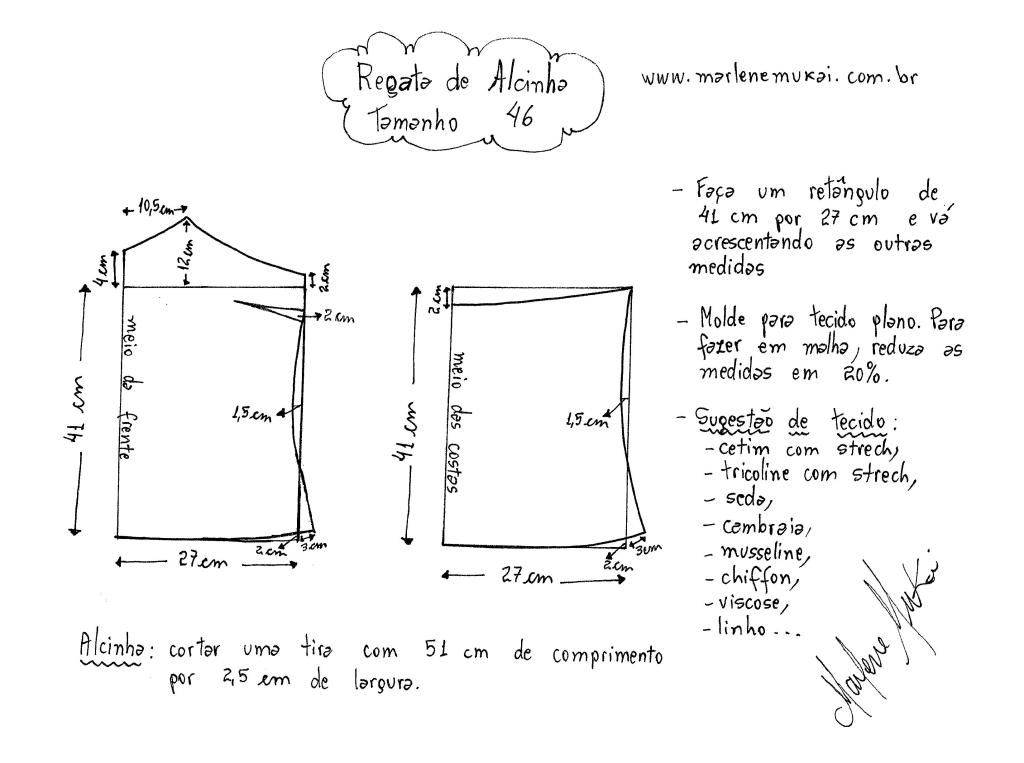 Regata de Alcinha
Tamanho 46
www.marlenemukai.com.br
10,5cm
4cm
12cm
2cm
2cm
41 cm
meio da frente
1,5cm
2cm
3cm
27cm
2cm
41 cm
meio das costas
1,5cm
2cm
3cm
27cm
- Faça um retângulo de
41 cm por 27 cm e vá
acrescentando as outras
medidas
- Molde para tecido plano. Para
fazer em malha, reduza as
medidas em 20%.
- Sugestão de tecido:
- cetim com strech,
- tricoline com strech,
- seda,
- cambraia,
- musseline,
- chiffon,
- viscose,
- linho...
Alcinha: cortar uma tira com 51 cm de comprimento
por 2,5 cm de largura.
Marlene Mukai